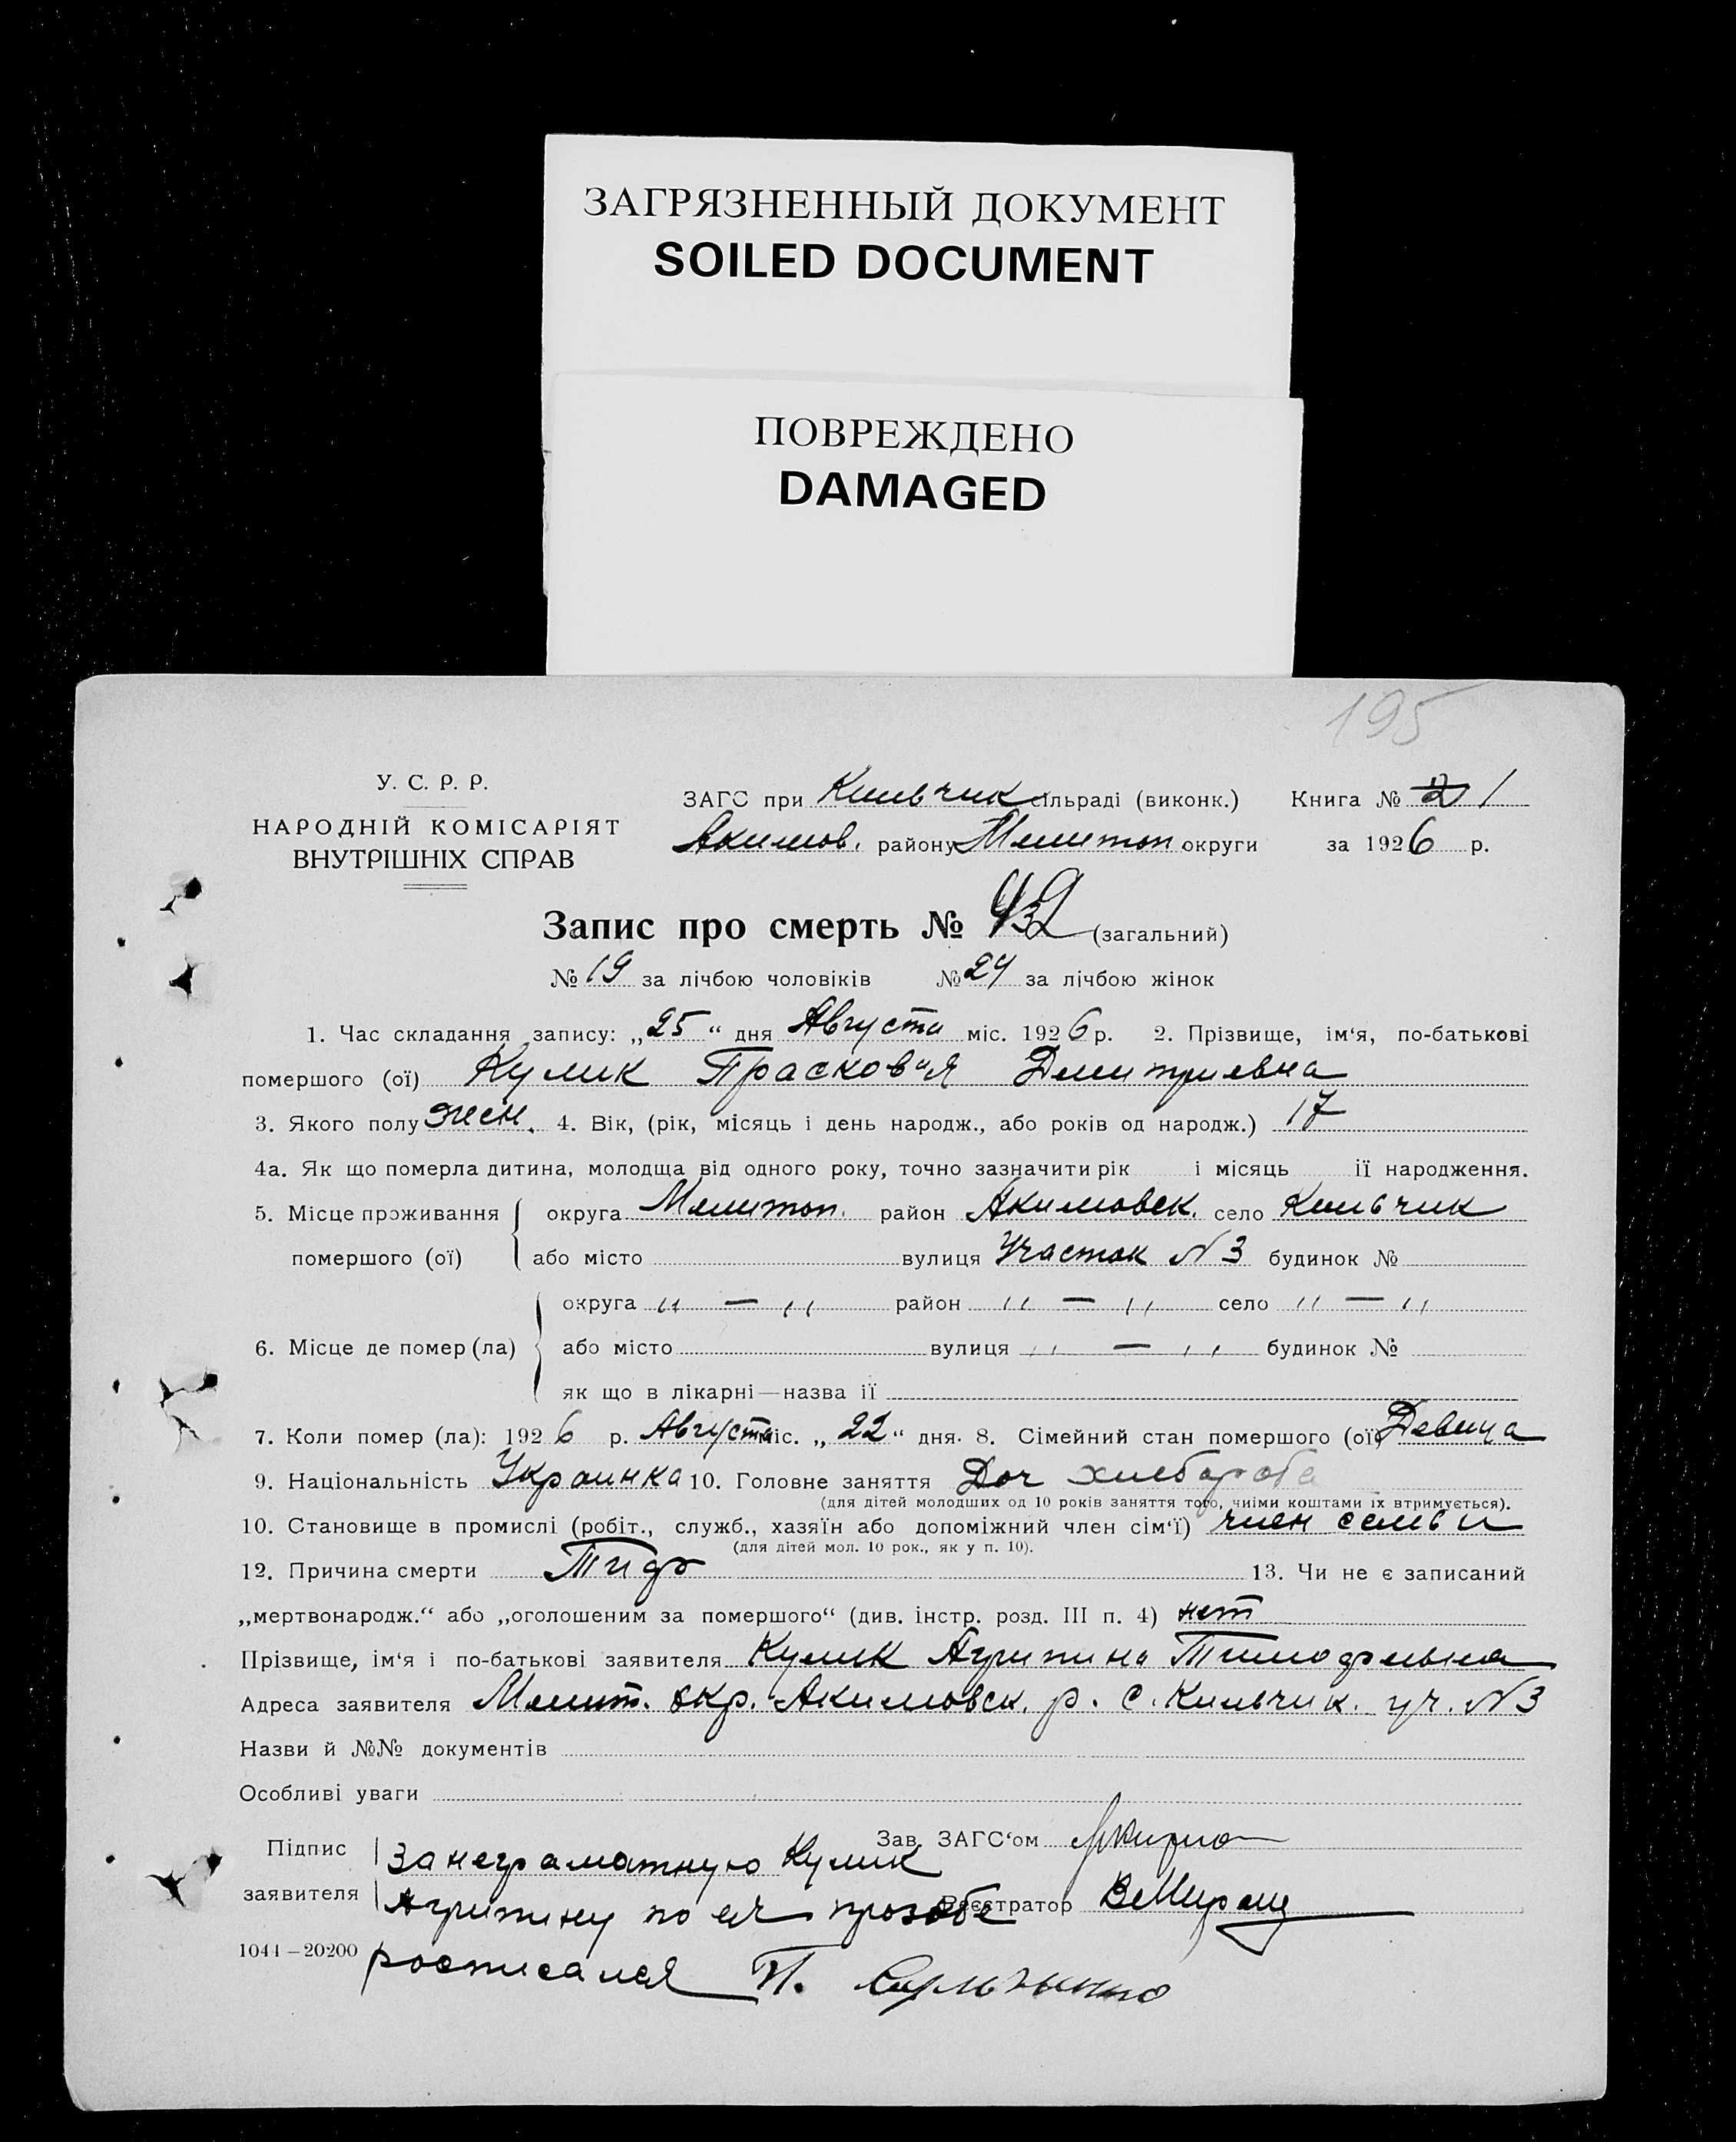 ЗАГРЯЗНЕННЫЙ ДОКУМЕНТ
SOILED DOCUMENT
ПОВРЕЖДЕНО
DAMAGED
195
У. С. Р. Р.
НАРОДНІЙ КОМІСАРІЯТ
ВНУТРІШНІХ СПРАВ
ЗАГС при Кильчик сільраді (виконк.) Книга № 2 1
Акимов. району Мелитоп округи за 1926 р.
Запис про смерть № (загальний)
№ 19 за лічбою чоловіків № 24 за лічбою жінок
1. Час складання запису: „25“ дня Августа міс. 1926 р. 2. Прізвище, ім‘я, по-батькові
помершого (ої) Кулик Прасковья Дмитриевна
3. Якого полу жен. 4. Вік, (рік, місяць і день народж., або років од народж.) 17
4а. Як що померла дитина, молодща від одного року, точно зазначити рік і місяць її народження.
5. Місце проживання округа Мелитоп. район Акимовск. село Кильчик
помершого (ої) або місто вулиця Участок N 3 будинок №
округа " — " район " — " село " — "
6. Місце де помер (ла) або місто вулиця " — " будинок №
як що в лікарні—назва її
7. Коли помер (ла): 1926 р. Августа міс. „22“ дня. 8. Сімейний стан помершого (ої) Девица
9. Національність Украинка 10. Головне заняття Доч хлебороба
(для дітей молодших од 10 років заняття того, чиїми коштами їх втримується).
10. Становище в промислі (робіт., служб., хазяїн або допоміжний член сім‘ї) член семьи
(для дітей мол. 10 рок., як у п. 10).
12. Причина смерти Тиф 13. Чи не є записаний
„мертвонародж.“ або „оголошеним за помершого“ (див. інстр. розд. III п. 4) нет
Прізвище, ім‘я і по-батькові заявителя Кулик Агрипина Тимофеевна
Адреса заявителя Мелит. окр. Акимовск. р. с. Кильчик. уч. N 3
Назви й №№ документів
Особливі уваги
Підпис За неграматную Кулик Зав. ЗАГС‘ом
заявителя Агрипину по ея прозобе Реєстратор
1044—20200 росписался П.